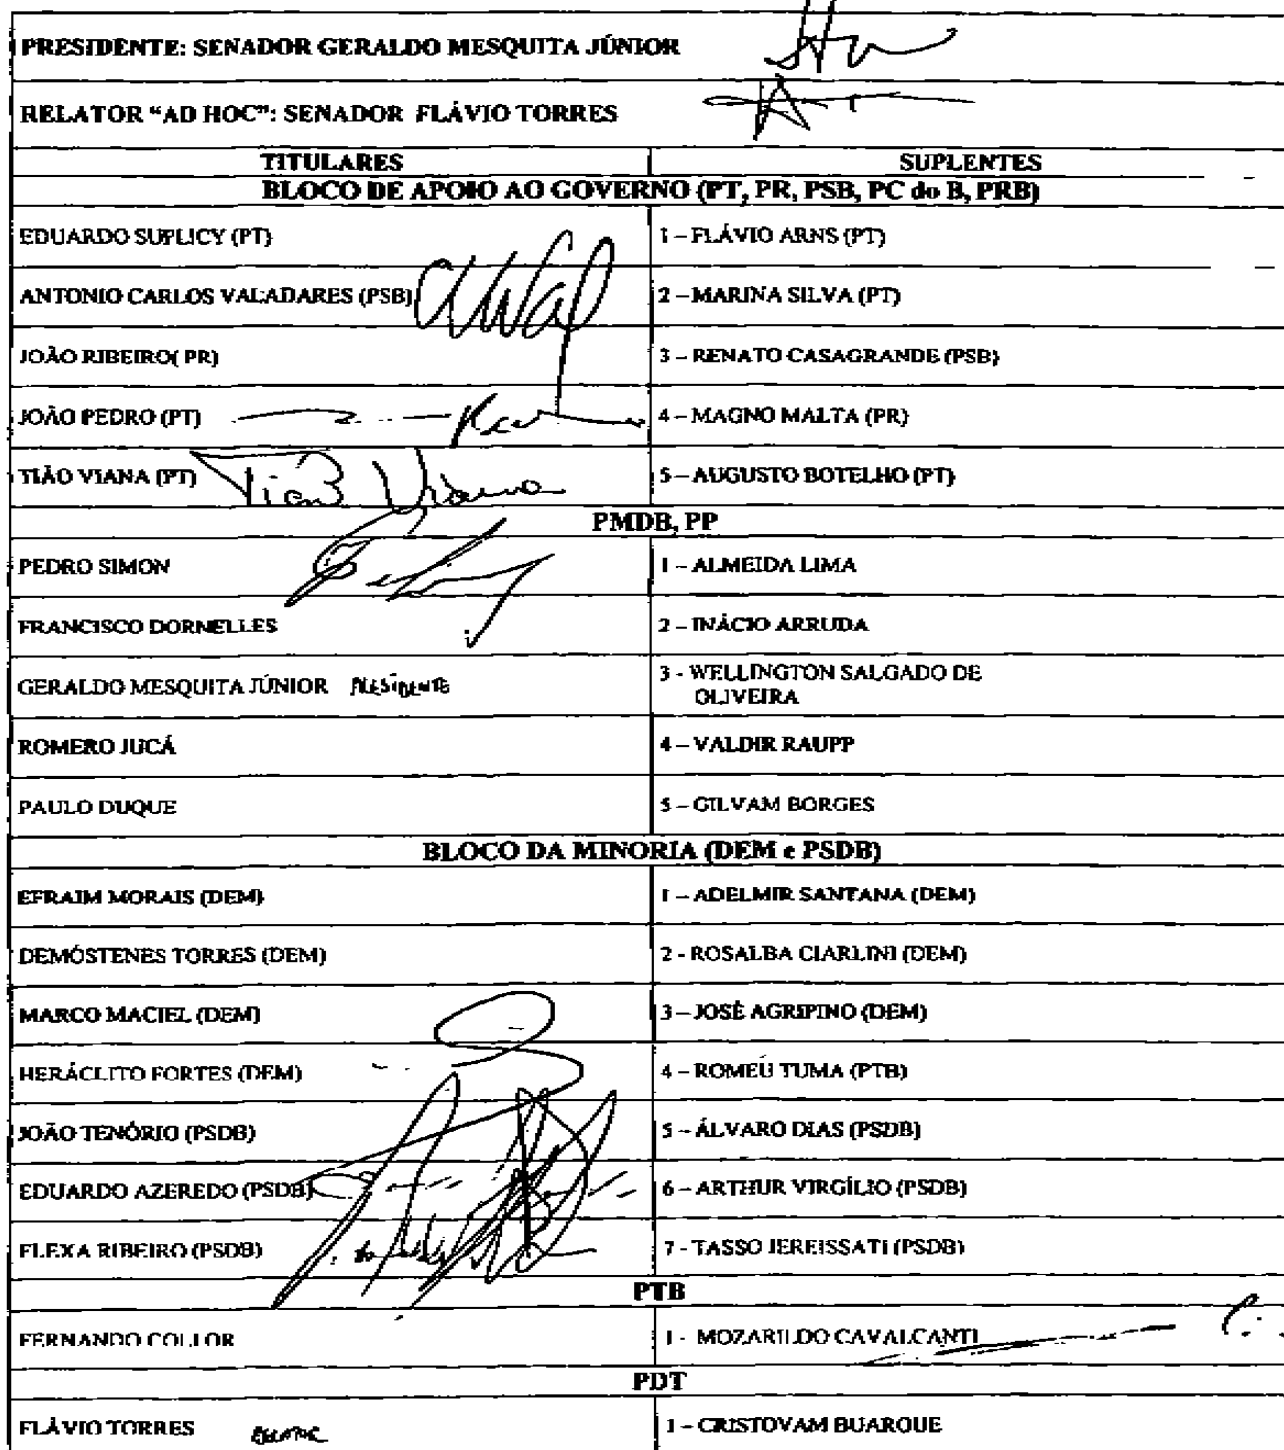 PRESIDENTE: SENADOR GERALDO MESQUITA JÚNIOR
RELATOR "AD HOC": SENADOR FLÁVIO TORRES
TITULARES SUPLENTES
BLOCO DE APOIO AO GOVERNO (PT, PR, PSB, PC do B, PRB)
EDUARDO SUPLICY (PT) 1 – FLÁVIO ARNS (PT)
ANTONIO CARLOS VALADARES (PSB) 2 – MARINA SILVA (PT)
JOÃO RIBEIRO( PR) 3 – RENATO CASAGRANDE (PSB)
JOÃO PEDRO (PT) 4 – MAGNO MALTA (PR)
TIÃO VIANA (PT) Tião Viana 5 – AUGUSTO BOTELHO (PT)
PMDB, PP
PEDRO SIMON 1 – ALMEIDA LIMA
FRANCISCO DORNELLES 2 – INÁCIO ARRUDA
GERALDO MESQUITA JÚNIOR PRESIDENTE 3 - WELLINGTON SALGADO DE
OLIVEIRA
ROMERO JUCÁ 4 – VALDIR RAUPP
PAULO DUQUE 5 – GILVAM BORGES
BLOCO DA MINORIA (DEM e PSDB)
EFRAIM MORAIS (DEM) 1 – ADELMIR SANTANA (DEM)
DEMÓSTENES TORRES (DEM) 2 - ROSALBA CIARLINI (DEM)
MARCO MACIEL (DEM) 3 – JOSÉ AGRIPINO (DEM)
HERÁCLITO FORTES (DEM) 4 – ROMEU TUMA (PTB)
JOÃO TENÓRIO (PSDB) 5 – ÁLVARO DIAS (PSDB)
EDUARDO AZEREDO (PSDB) 6 – ARTHUR VIRGÍLIO (PSDB)
FLEXA RIBEIRO (PSDB) 7 - TASSO JEREISSATI (PSDB)
PTB
FERNANDO COLLOR 1 - MOZARILDO CAVALCANTI
PDT
FLÁVIO TORRES RELATOR 1 – CRISTOVAM BUARQUE